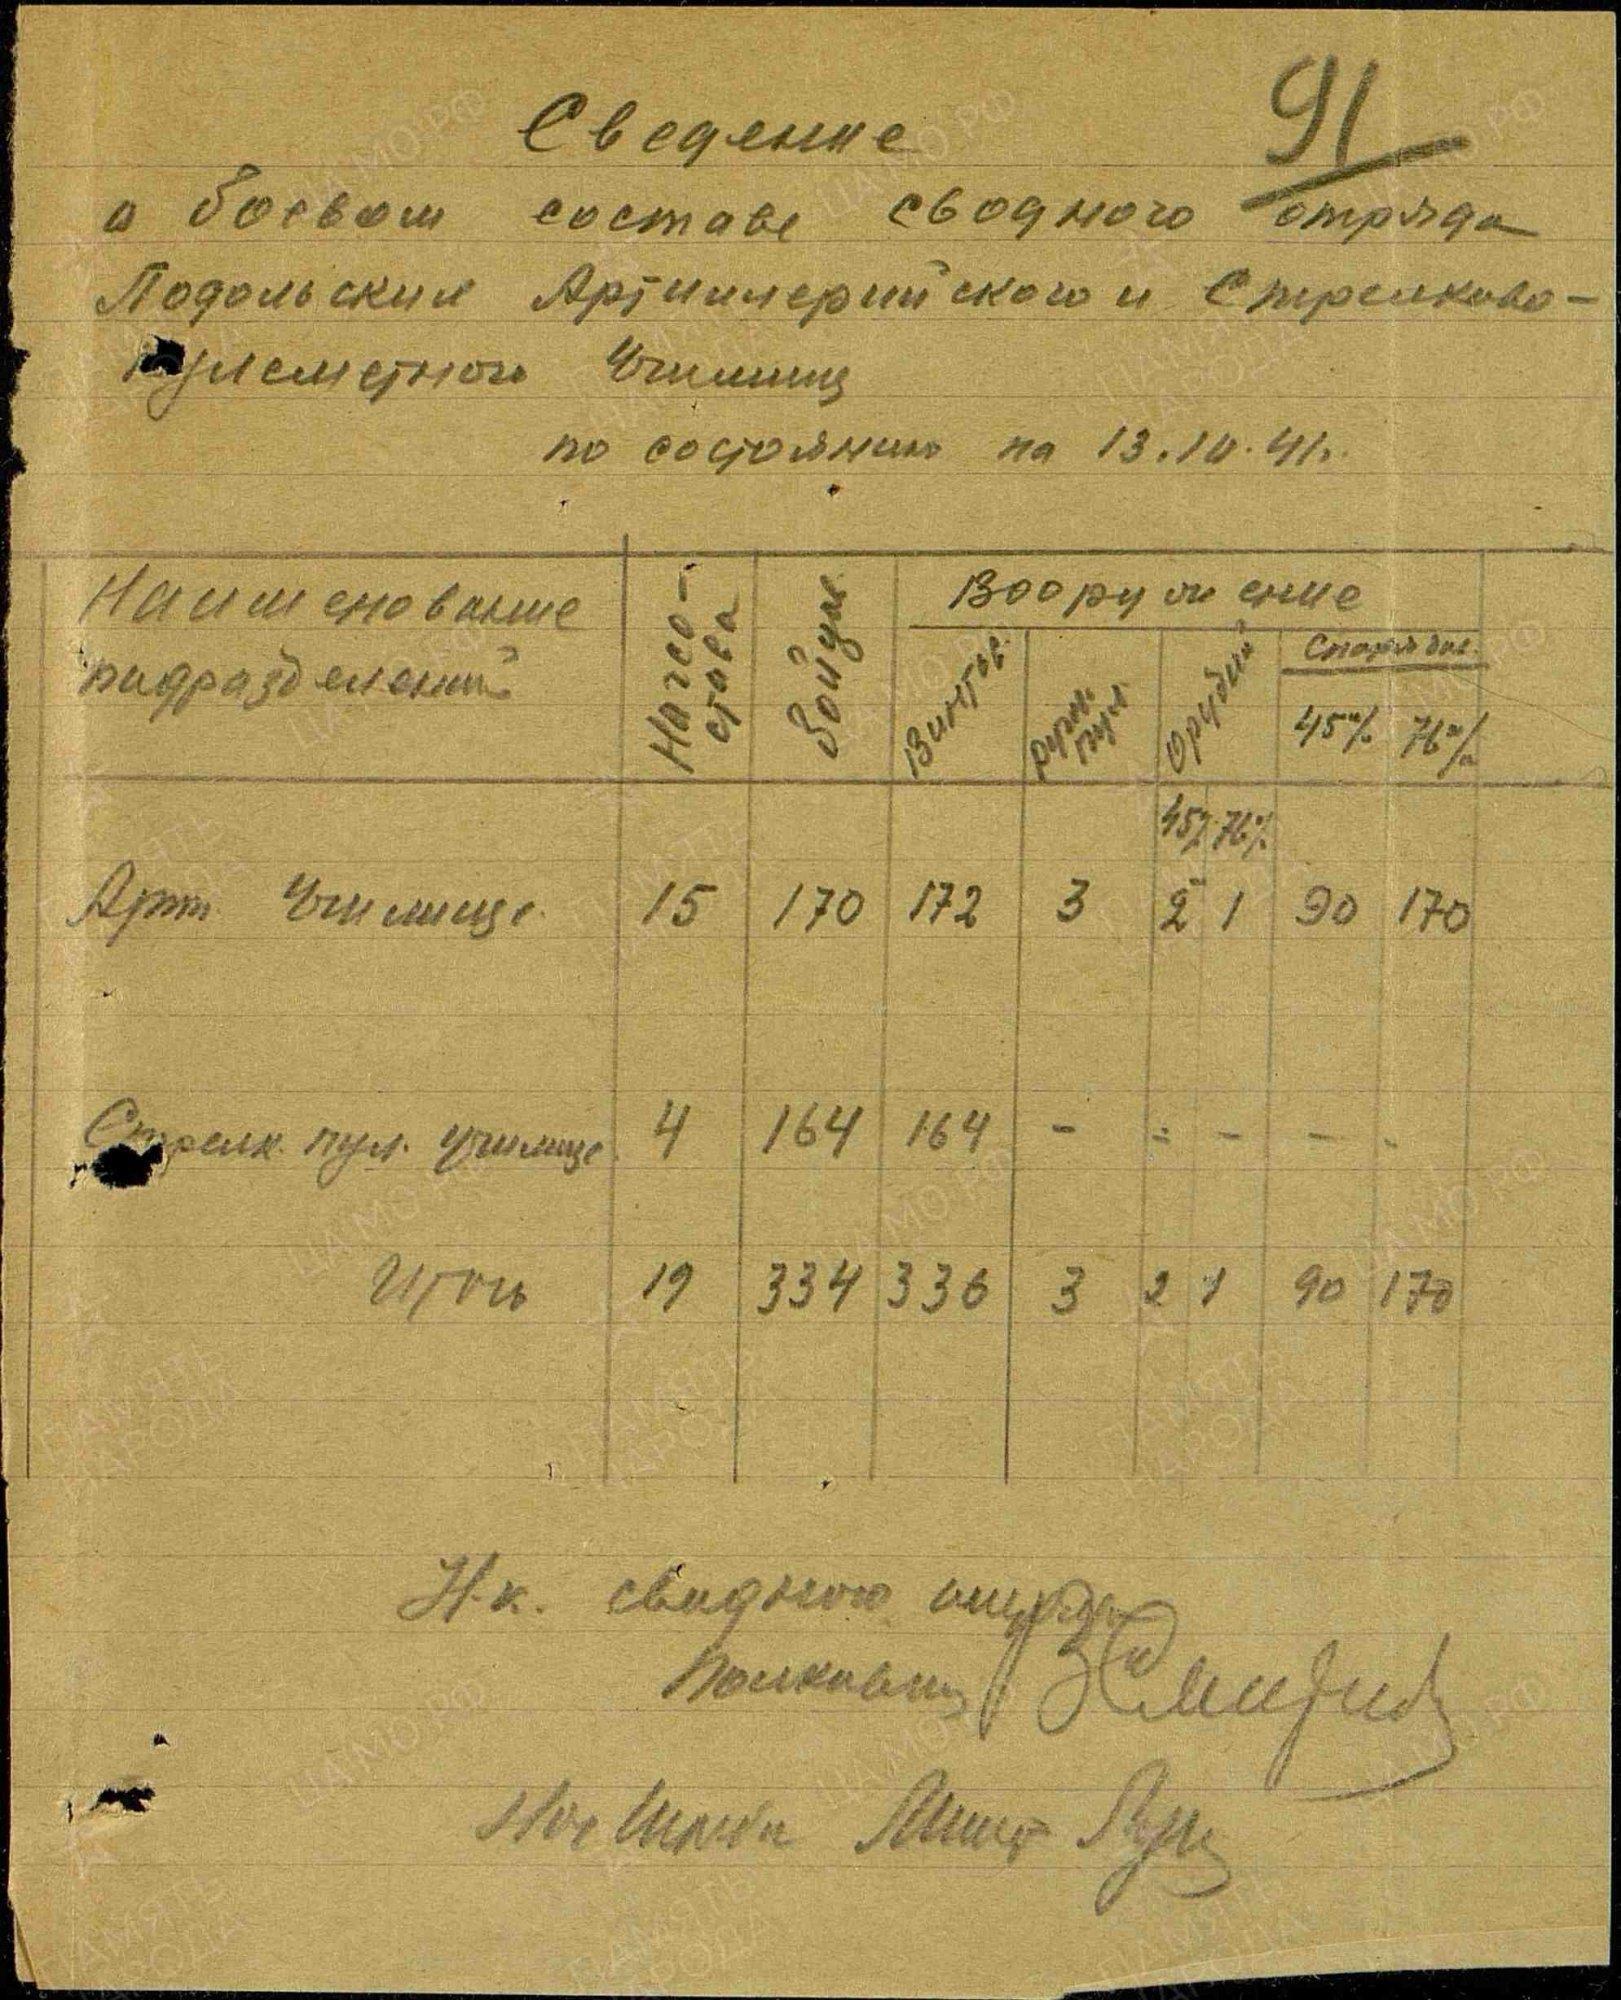 91
Сведение
о боевом составе сводного отряда
Подольских Артиллерийского и Стрелково-
пулеметного Училищ
по состоянию на 13.10.41г.
Наименование подразделений
Начсостава
Бойцов
Вооружение
Винтов.
Ручн. пул
Орудий
Снарядов
45м/м 76м/м
45м/м 76м/м
Арт. Училище 15 170 172 3 2 1 90 170
Стрелк. пул. училище 4 164 164 - - - - -
Итого 19 334 336 3 2 1 90 170
Н-к. сводного отряда
Полковник
Нач Штаба
ПАМЯТЬ НАРОДА
ЦАМО.РФ